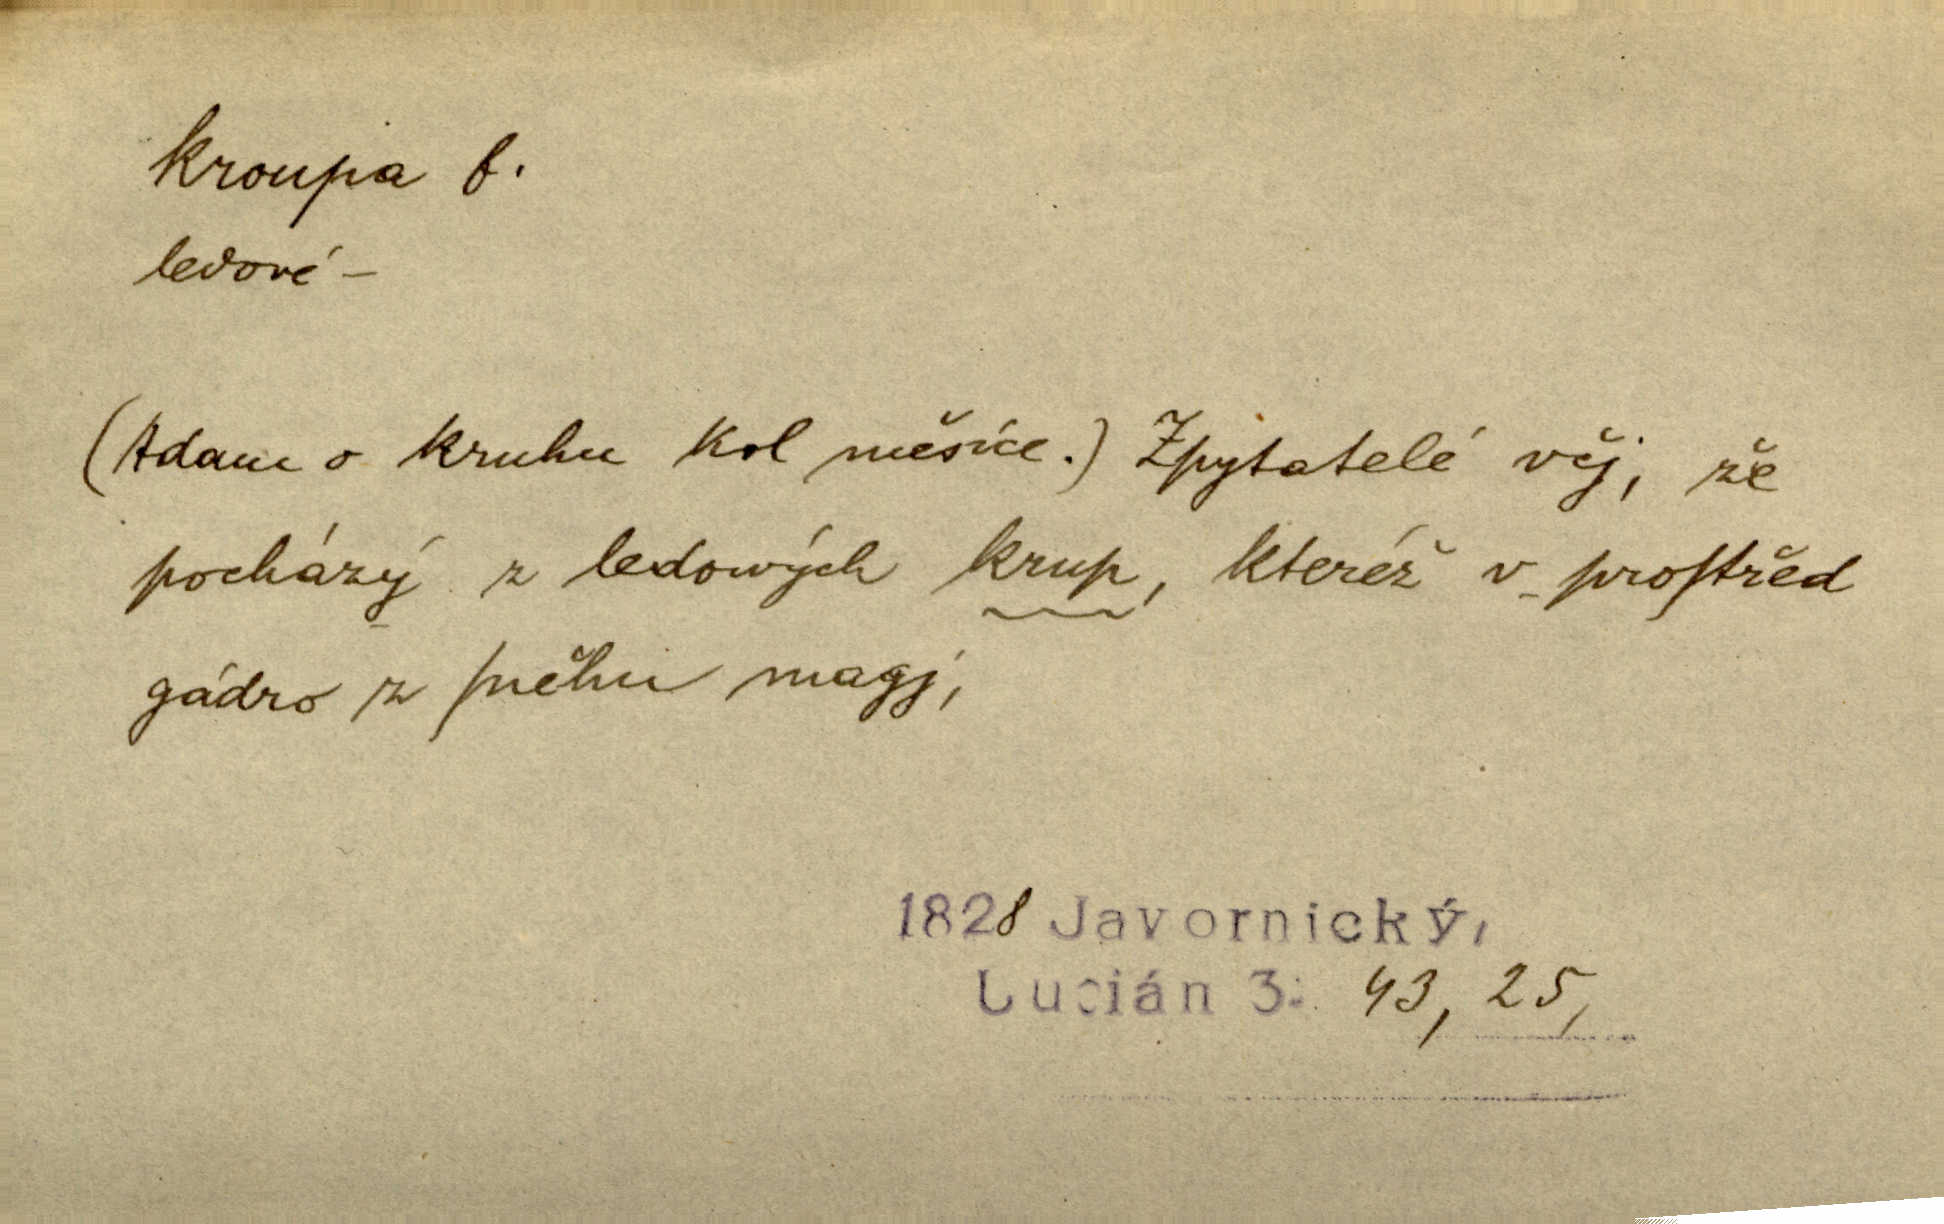 kroupa f.
ledové –
(Adam o kruhu kol měsíce.) Zpytatelé věj, že
pocházý z ledowých krup, kteréž v proſtřed
gádro z ſněhu magj,
1828 Javornický,
Lucián 3. 43, 25,